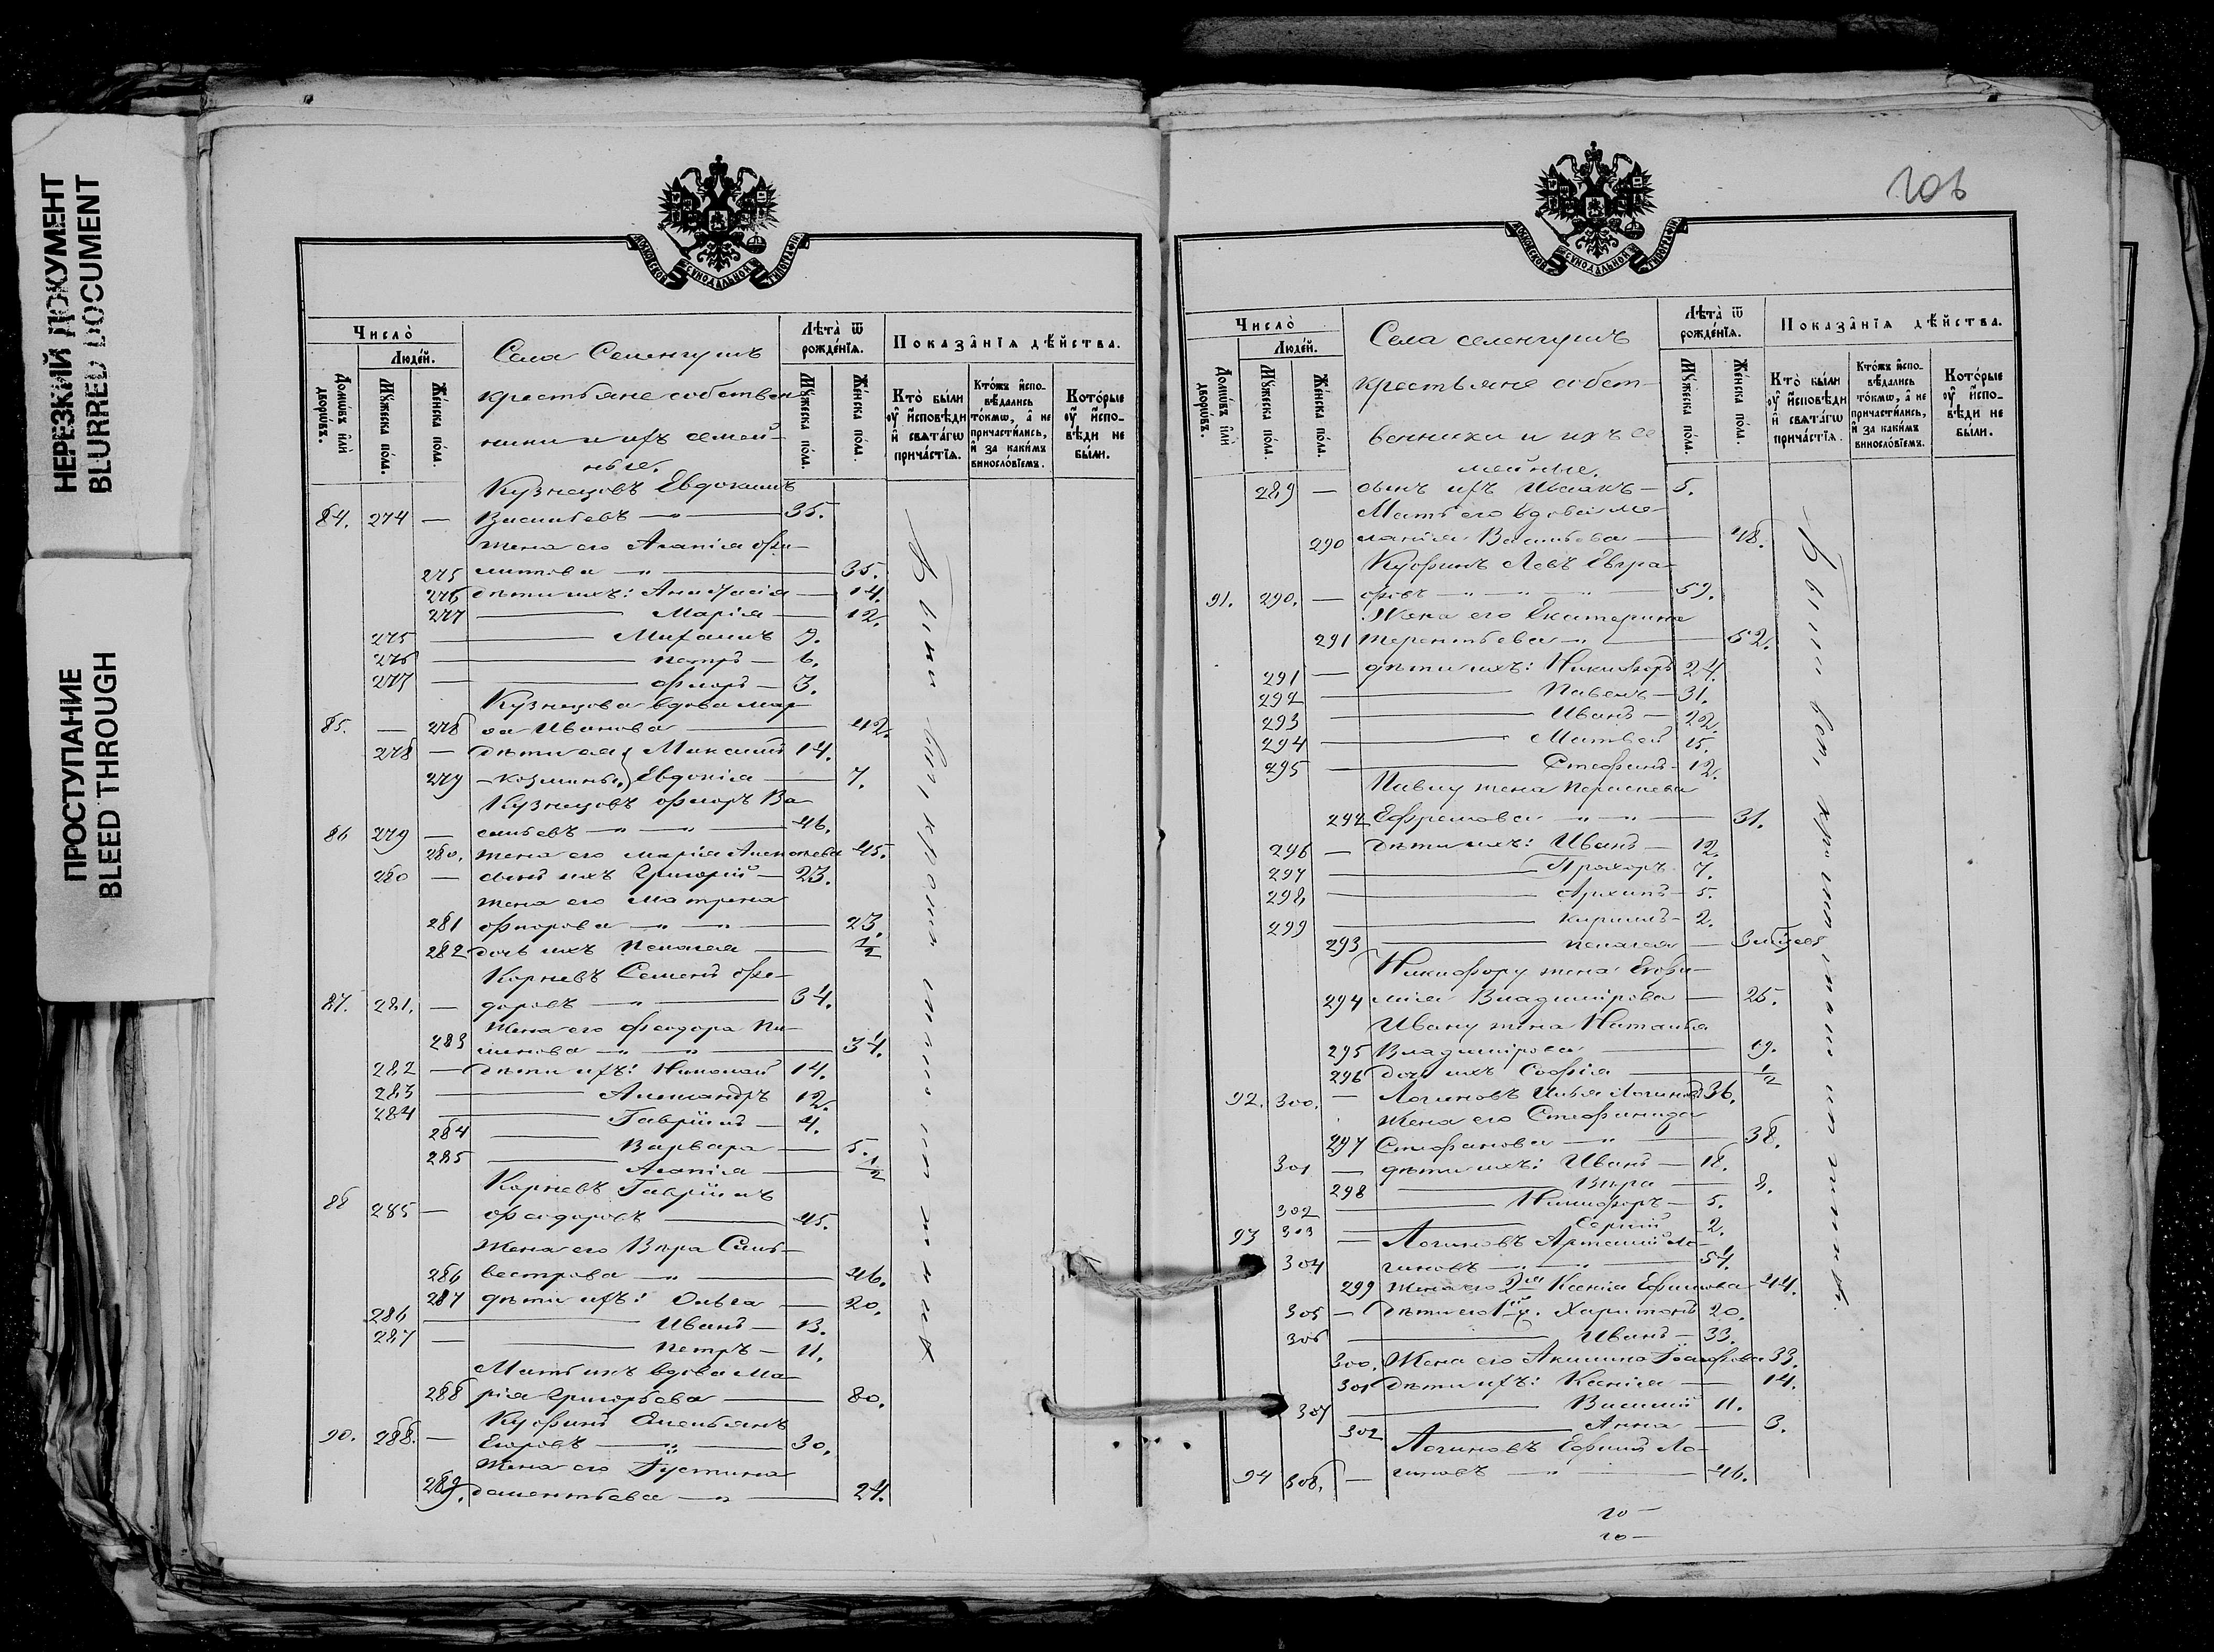 НЕРЕЗКИЙ ДОКУМЕНТ
BLURRED DOCUMENT
ПРОСТУПАНИЕ
BLEED THROUGH
МОСКОВСКОЙ СѴНОДАЛЬНОЙ ТИПОГРАФІИ
Число̀
Люде́й.
Домѡ́въ и҆лѝ дворѡ́въ.
Мꙋ́жеска по́ла.
Же́нска по́ла.
Села Селенгушъ
крестьяне собствен
ники и ихъ семей-
ные.
Лѣ́та ѿ рожде́нїѧ.
Мꙋ́жеска по́ла.
Же́нска по́ла.
Показа̑нїѧ дѣ́йства.
Кто̀ бы́ли оу҆ и҆сповѣ́ди и҆ свѧта́гѡ прича́стїѧ.
Кто́жъ и҆спо-вѣ́дались то́кмѡ, а҆ не причасти́лись, и҆ за каки́мъ виносло́вїемъ.
Кото́рые оу҆ и҆спо-вѣ́ди не бы́ли.
Кузнецовъ Евдокимъ
84. 274 — Васильевъ — " — 35.
Жена его Агапія Фи-
275 липова — " — 35.
276 дѣти ихъ: Анастасія — 14.
277 — Марія — 12.
275 — Михаилъ 9.
276 — Петръ — 6.
277 — Флоръ — 3.
Кузнецова вдова Мар
85. — 278 ѳа Иванова — 42.
278 — Дѣти ея Максимъ 14.
279 — Козмины Евдокія — 7.
Кузнецовъ Флоръ Ва
86 279 — сильевъ — " — " — 46.
280. Жена его Марія Алексѣева 45.
280 — сынъ ихъ Григорій — 23.
Жена его Матрена
281 Флорова — " — " — 23.
282 дочь ихъ Пелагея — 1/2
Корневъ Семенъ Фе-
87. 281. — доровъ — " — 34.
Жена его Феодора Пи-
283 менова — " — " — 34.
282 — Дѣти ихъ: Николай 14.
283 — Александръ 12.
284 — Гавріилъ — 4.
284 — Варвара — 5.
285 — Агапія — 1/2
Корневъ Гавріилъ
88 285 — Феодоровъ — 45.
Жена его Вѣра Силь-
286 вестрова — " — 46.
287 дѣти ихъ: Ольга — 20.
286 — Иванъ — 13.
287 — Петръ — 11.
Мать ихъ вдова Ма-
288 рія Григорьева — 80.
Куфинъ Емельянъ
90. 288. — Егоровъ — " — 30.
Жена его Іустина
289. Дементьева — " — 24.
Были вси кромѣ
106
МОСКОВСКОЙ СѴНОДАЛЬНОЙ ТИПОГРАФІИ
Число̀
Люде́й.
Домѡ́въ и҆лѝ дворѡ́въ.
Мꙋ́жеска по́ла.
Же́нска по́ла.
Села Селенгушъ
крестьяне собст-
венники и ихъ се
мейные.
Лѣ́та ѿ рожде́нїѧ.
Мꙋ́жеска по́ла.
Же́нска по́ла.
Показа̑нїѧ дѣ́йства.
Кто̀ бы́ли оу҆ и҆сповѣ́ди и҆ свѧта́гѡ прича́стїѧ.
Кто́жъ и҆спо-вѣ́дались то́кмѡ, а҆ не причасти́лись, и҆ за каки́мъ виносло́вїемъ.
Кото́рые оу҆ и҆спо-вѣ́ди не бы́ли.
289 — сынъ ихъ Исаакъ — 5.
Мать его вдова Ме-
290 ланія Васильева — 48.
Куфинъ Левъ Евгра-
91. 290. — фовъ — " — " — 59.
Жена его Екатерина
291 Терентьева — " — 52.
291 — дѣти ихъ: Никифоръ 24.
292 — Павелъ — 31.
293 — Иванъ — 22.
294 — Матвей 15.
295 — Стефанъ — 12.
Павлу жена Параскева
292 Ефремова — " — " — 31.
296 — Дѣти ихъ: Иванъ — 12.
297 — Прохоръ 7.
298 — Архипъ — 5.
299 — Кирилъ — 2.
293 — Пелагея —
Никифору жена Евфи-
294 мія Владимірова — 25.
Ивану жена Наталья
295 Владимірова — 19.
296 дочь ихъ Софія — 1/2
92. 300. — Логиновъ Илья Логиновъ 36.
Жена его Стефанида
297 Стефанова — " — 38.
301 — дѣти ихъ: Иванъ — 18.
298 — Вѣра — 8.
302 — Никифоръ — 5.
303 — Сергій 2.
93 — Логиновъ Артемій Ло-
304 гиновъ — " — " — 54.
299 Жена его 2я Ксенія Ефимова 44.
305 — Дѣти его 1й ж. Харитонъ 20.
306 — Иванъ — 33.
300. Жена его Акилина 33.
301 Дѣти ихъ: Ксенія — 14.
307 — Василій 11.
302 — Анна — 3.
Логиновъ Ефимъ Ло-
94 308. — гиновъ — " — 46.
Были вси кромѣ